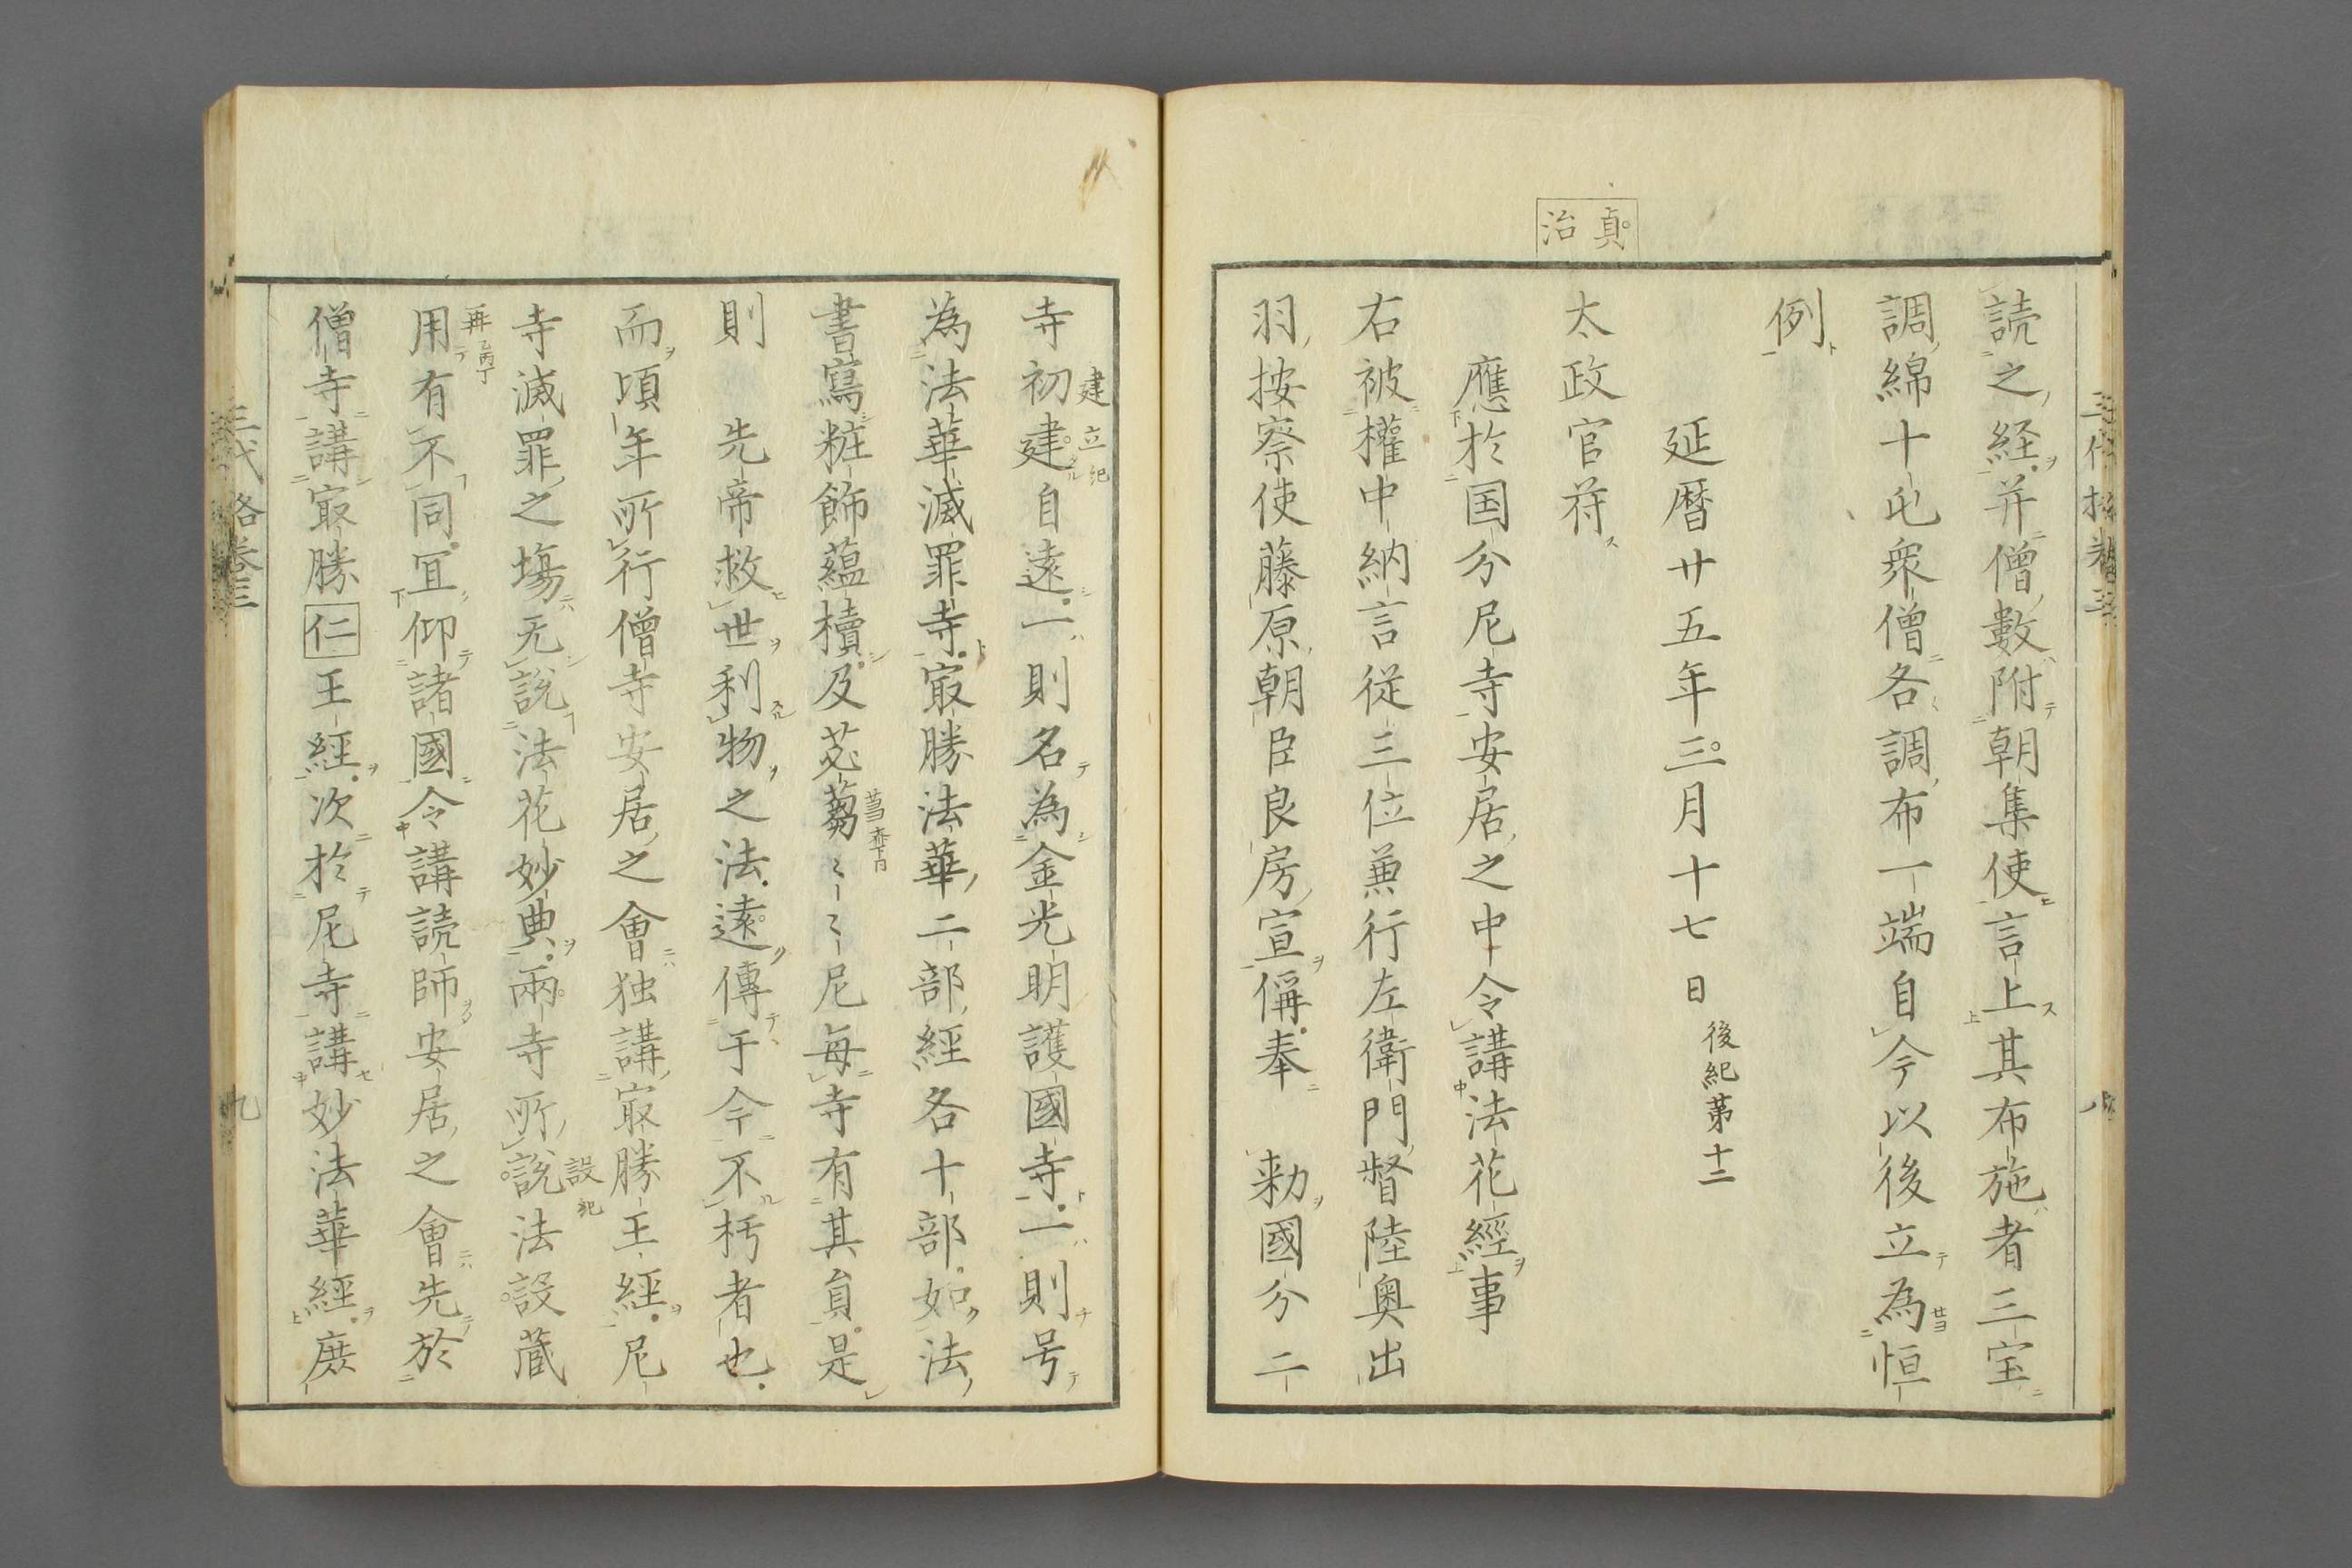 貞治
読之経并僧數附朝集使言上其布施者三宝
調綿十屯衆僧各調布一端自今以後立為恒
例
延暦廿五年三月十七日後紀第十二
太政官符
應於国分尼寺安居之中令講法花經事
右被權中納言従三位兼行左衛門督陸奥出
羽按察使藤原朝臣良房宣偁奉　勅國分二
寺初建自遠一則名為金光明護國寺一則号
為法華滅罪寺寂勝法華二部經各十部如法
書寫粧飾蘊櫝及苾蒭〻〻尼毎寺有其員是
則　先帝救世利物之法遠傳于今不朽者也
而頃年所行僧寺安居之會独講寂勝王經尼
寺滅罪之塲无說法花妙典兩寺所說法設蔵
用有不同冝仰諸國令講読師安居之會先於
僧寺講寂勝仁王經次於尼寺講妙法華經庶
三代格卷三
九